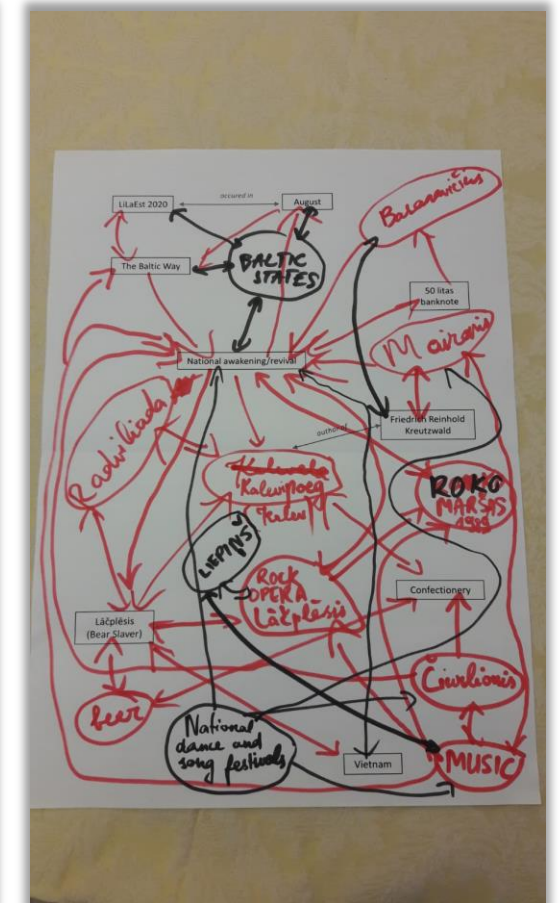 LiLaEst 2020
occured in
August
Basanavičius
The Baltic Way
BALTIC
STATES
50 litas
banknote
Maironis
National awakening/revival
Radviliada
author of
Friedrich Reinhold
Kreutzwald
Kalevala
Kalevipoeg
Kalev
ROKO
MARŠAS
1989
LIEPIŅŠ
ROCK
OPERA
Lāčplēsis
Confectionery
Láčplésis
(Bear Slayer)
beer
Čiurlionis
National
dance and
song festivals
Vietnam
MUSIC